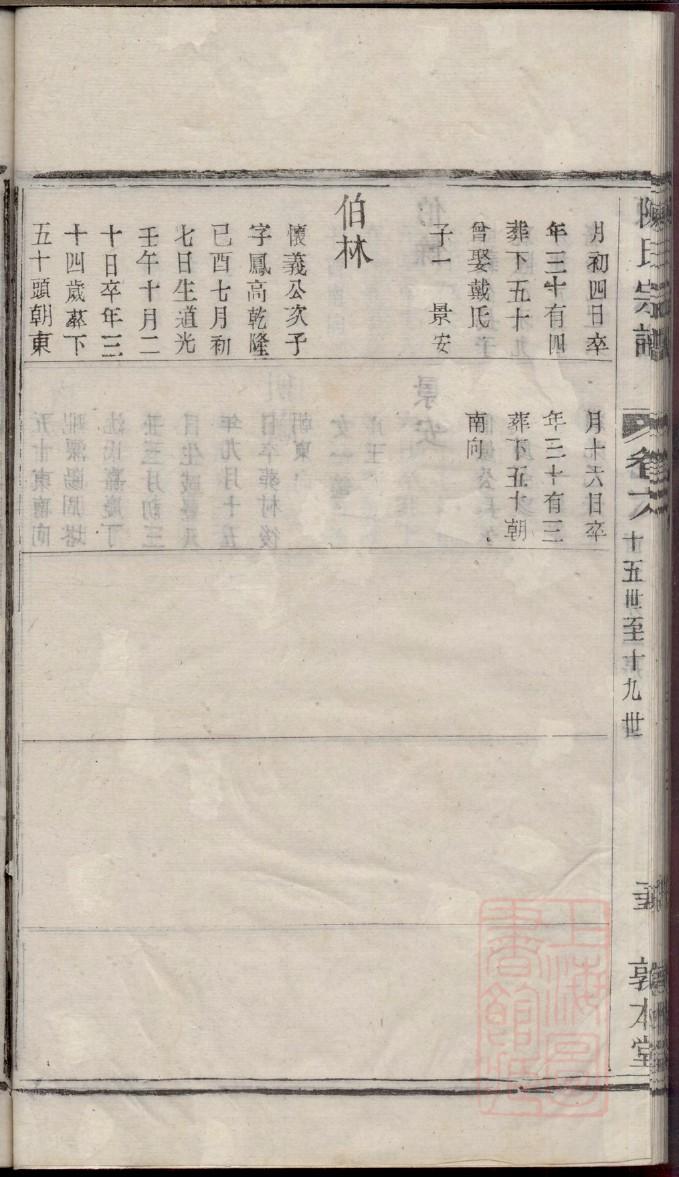 陳氏宗譜
卷六
十五世至十九世
敦本堂
月初四日卒
年三十有四
葬下五十九
曾娶戴氏
子一 景安
伯林
懷義公次子
字鳳高乾隆
己酉七月初
七日生道光
壬午十月二
十日卒年三
十四歲葬下
五十頭朝東
月十六日卒
年三十有三
葬下五十朝
南向
上海圖
書館藏